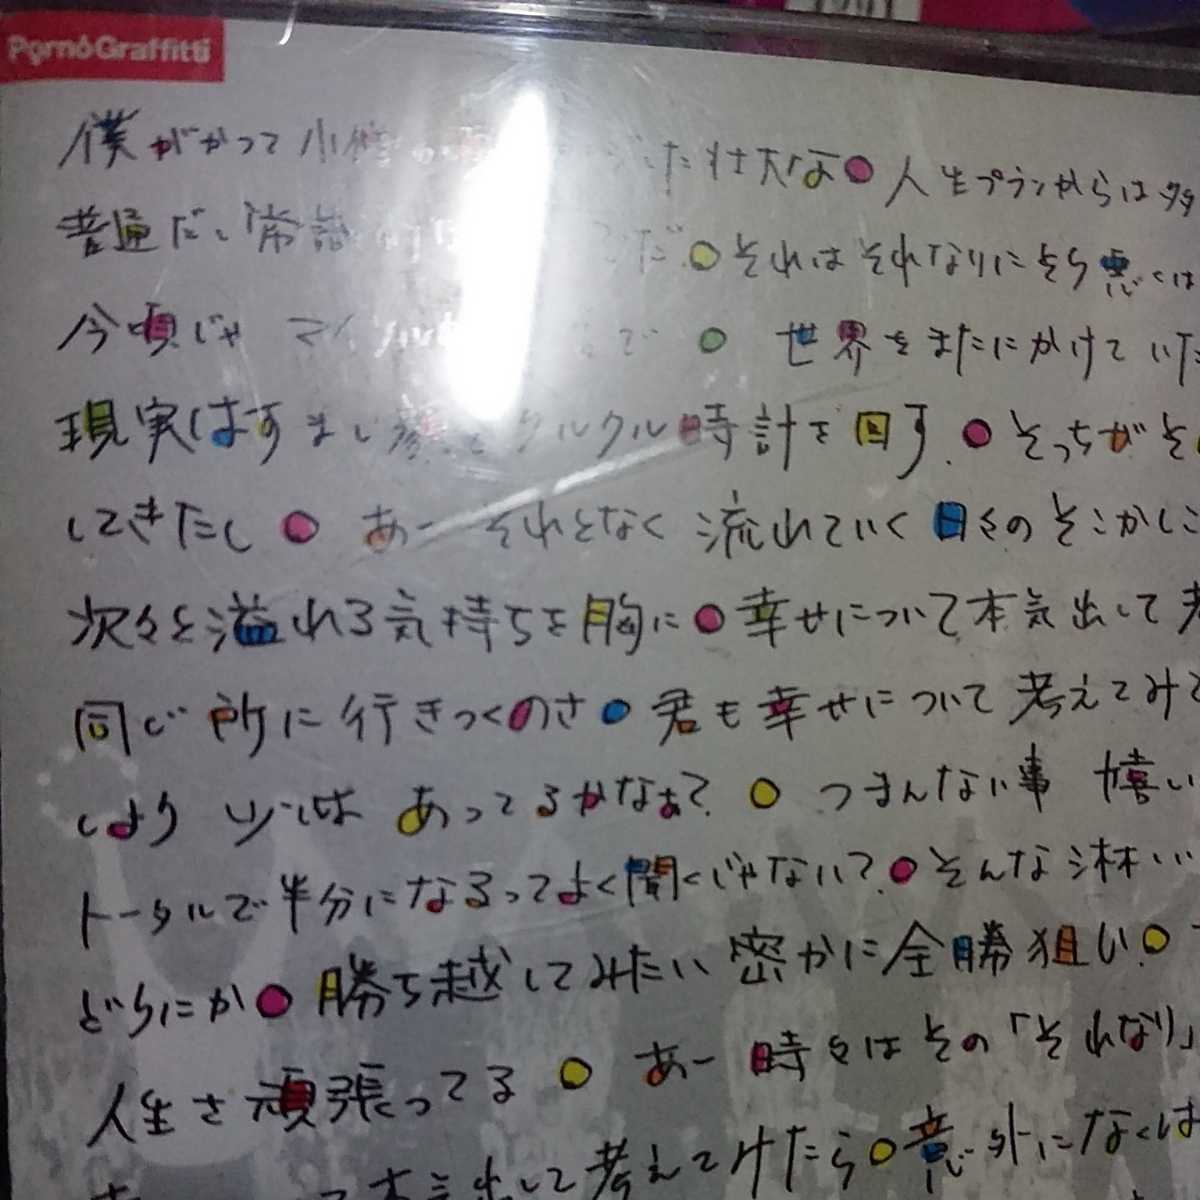 PornoGraffitti
僕がかって小 た壮大な 人生プランからは
普通だし常識 だ それはそれなりにそう悪くは
今頃じゃ マイ で 世界をまたにかけていた
現実はすまし顔でクルクル時計を回す そっちがそ
してきたし あー それとなく流れていく日々のそこかしこ
次々と溢れる気持ちを胸に 幸せについて本気出して考
同じ所に行きつくのさ 君も幸せについて考えてみて
しより 少しは あってるかなぁ? つまんない事 嬉しい
トータルで半分になるってよく聞くじゃない? そんな淋しい
どうにか 勝ち越してみたい 密かに全勝狙い
人生さ頑張ってる あー 時々はその「それなり」
本気出して考えてみたら 意外になくは